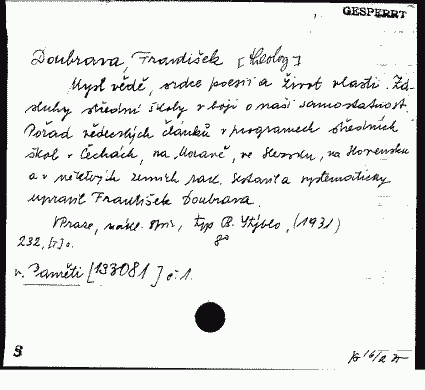 GESPERRT
Doubrava, František [theolog]
Mysl vědě, srdce poesii a život vlasti. Zá-
sluhy střední školy v boji o naši samostatnost.
Pořad vědeckých článků v programech středních
škol v Čechách, na Moravě, ve Slezsku, na Slovensku
a v některých zemích rak. Sestavil a systematicky
upravil František Doubrava.
V Praze, nákl. typ B. Stýblo, (1931)
232, [1] s. 8°
v. Paměti [133081] č. 1.
S